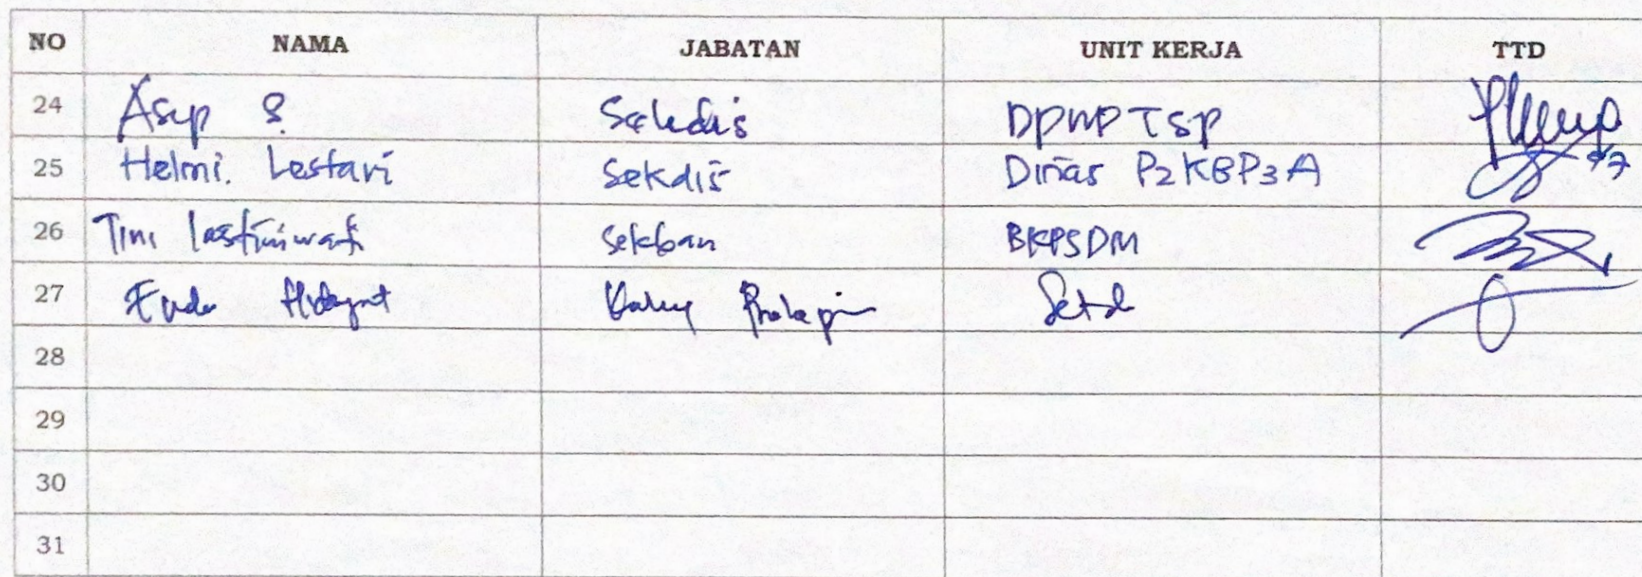 NO NAMA JABATAN UNIT KERJA TTD
24 Asep S. Sekdis DPMPTSP
25 Helmi. Lestari Sekdis Dinas P2KBP3A
26 Tini Lastiniwati Sekban BKPSDM
27 Hidayat Setda
28
29
30
31